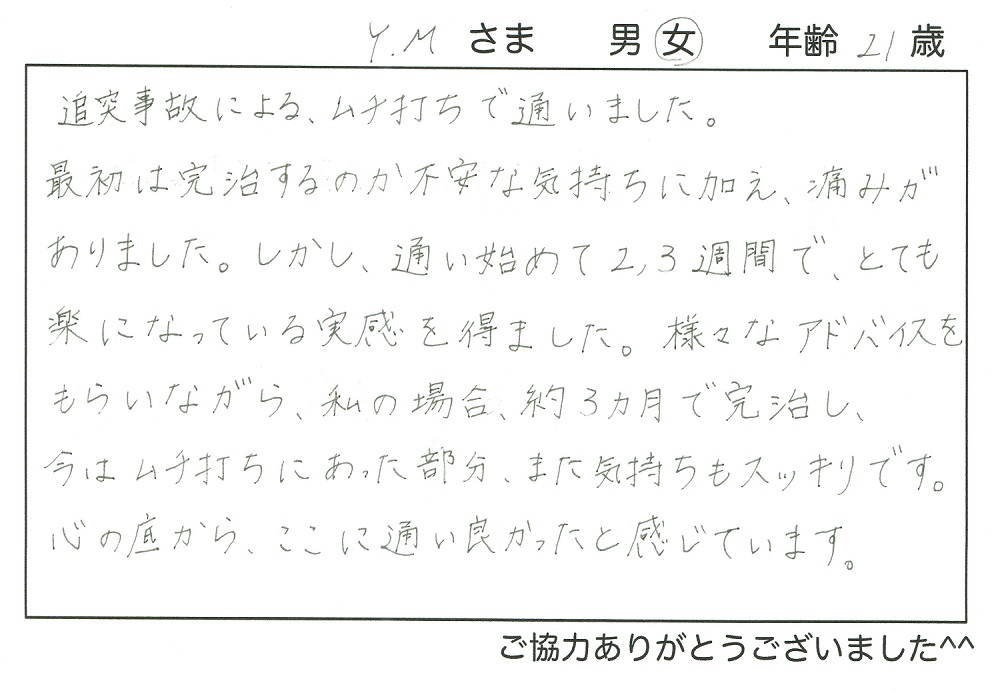 Y.M さま 男 女 年齢 21 歳
追突事故による、ムチ打ちで通いました。
最初は完治するのか不安な気持ちに加え、痛みが
ありました。しかし、通い始めて2,3週間で、とても
楽になっている実感を得ました。様々なアドバイスを
もらいながら、私の場合、約3カ月で完治し、
今はムチ打ちにあった部分、また気持ちもスッキリです。
心の底から、ここに通い良かったと感じています。
ご協力ありがとうございました^^